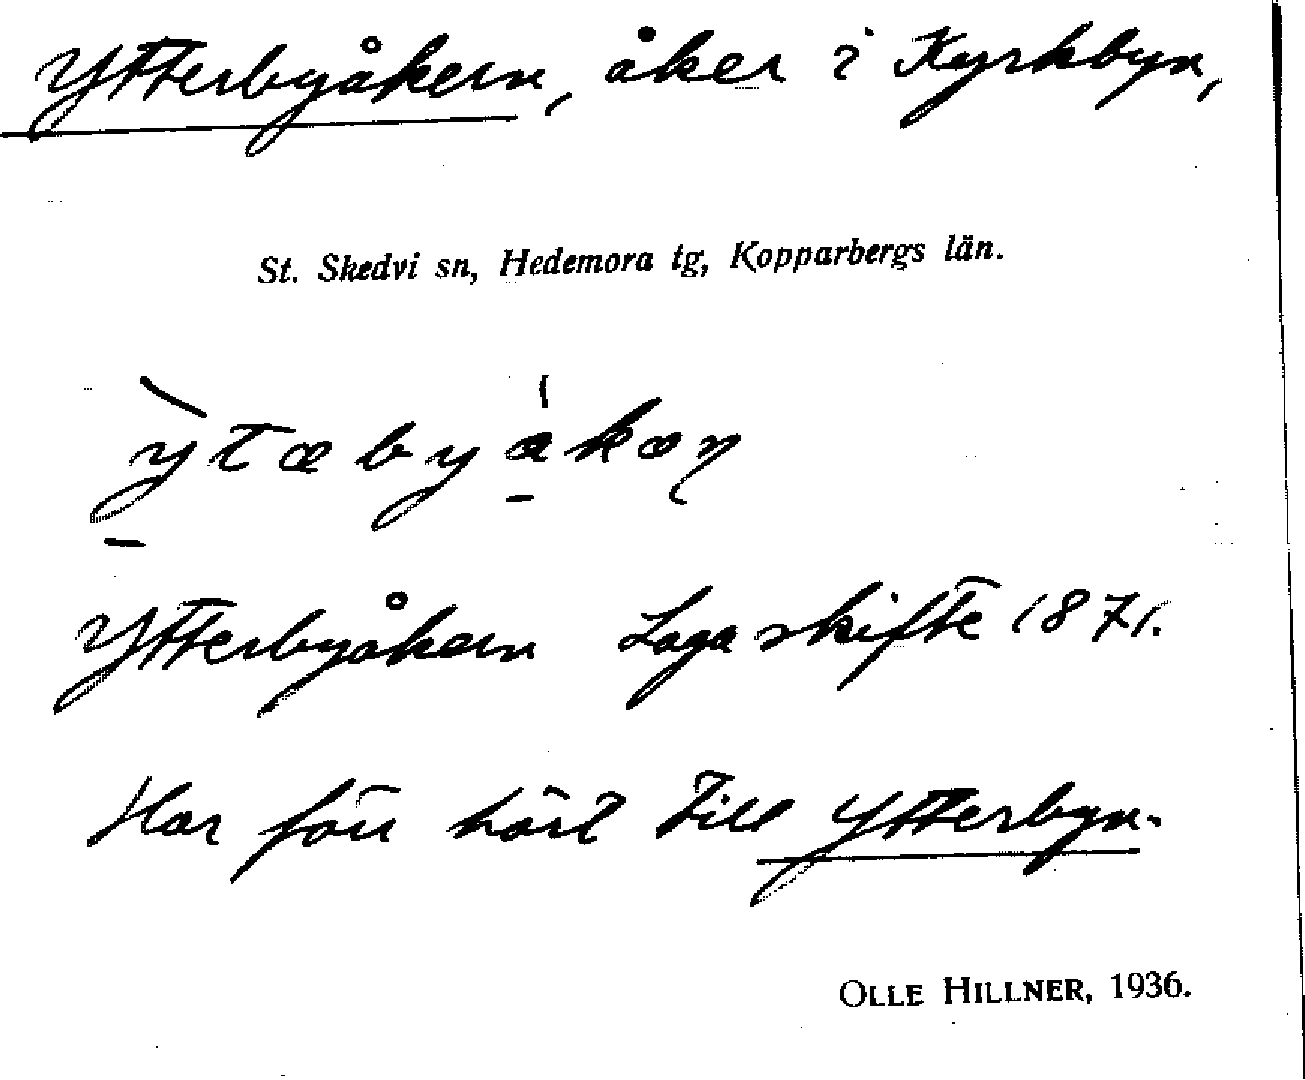 Ytterbyåkern, åker i Kyrkbyn,
St. Skedvi sn, Hedemora tg, Kopparbergs län.
Ytterbyåkern Laga skifte 1871.
Har förr hört till Ytterbyn.
OLLE HILLNER, 1936.